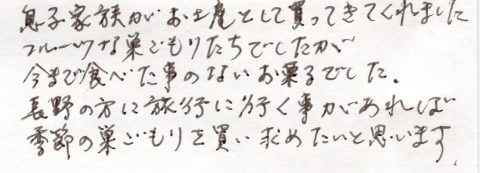 息子家族がお土産として買ってきてくれました
フルーツな巣ごもりたちでしたが
今まで食べた事のないお菓子でした。
長野の方に旅行に行く事があれば
季節の巣ごもりを買い求めたいと思います。